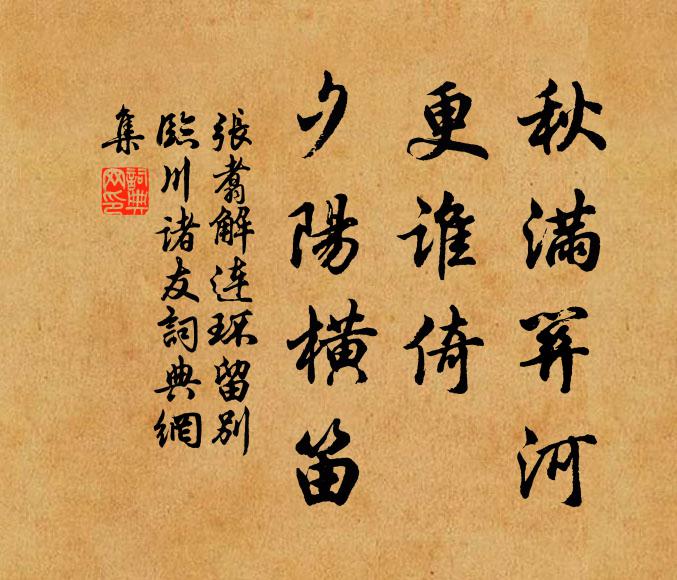 秋滿關河
更誰倚
夕陽橫笛
張翥解連環留別
臨川诸友詞典網
集
詞典
网印